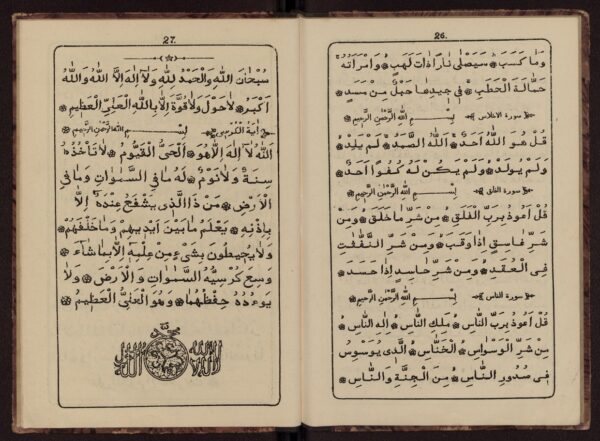 26.
وَمَا كَسَبَ ۞ سَيَصْلٰى نَارًا ذَاتَ لَهَبٍ ۞ وَامْرَاَتُهُ
حَمَّالَةَ الْحَطَبِ ۞ فِى جِيدِهَا حَبْلٌ مِنْ مَسَدٍ ۞
سورة الاخلاص بِسْــمِ اللهِ الرَّحْمٰنِ الرَّحِيمِ
قُلْ هُوَ اللهُ اَحَدٌ ۞ اَللهُ الصَّمَدُ ۞ لَمْ يَلِدْ
وَلَمْ يُولَدْ ۞ وَلَمْ يَكُنْ لَهُ كُفُوًا اَحَدٌ ۞
سورة الفلق بِسْــمِ اللهِ الرَّحْمٰنِ الرَّحِيمِ
قُلْ اَعُوذُ بِرَبِّ الْفَلَقِ ۞ مِنْ شَرِّ مَا خَلَقَ ۞ وَمِنْ
شَرِّ غَاسِقٍ اِذَا وَقَبَ ۞ وَمِنْ شَرِّ النَّفّٰثٰتِ
فِى الْعُقَدِ ۞ وَمِنْ شَرِّ حَاسِدٍ اِذَا حَسَدَ ۞
سورة الناس بِسْــمِ اللهِ الرَّحْمٰنِ الرَّحِيمِ
قُلْ اَعُوذُ بِرَبِّ النَّاسِ ۞ مَلِكِ النَّاسِ ۞ اِلٰهِ النَّاسِ ۞
مِنْ شَرِّ الْوَسْوَاسِ ۞ الْخَنَّاسِ ۞ اَلَّذِى يُوَسْوِسُ
فِى صُدُورِ النَّاسِ ۞ مِنَ الْجِنَّةِ وَالنَّاسِ ۞
27.
سُبْحَانَ اللهِ وَالْحَمْدُ لِلّٰهِ وَلَا اِلٰهَ اِلَّا اللهُ وَاللهُ
اَكْبَرُ ۞ لَاحَوْلَ وَلَا قُوَّةَ اِلَّا بِاللهِ الْعَلِىِّ الْعَظِيمِ ۞
اٰية الكرسى بِسْــمِ اللهِ الرَّحْمٰنِ الرَّحِيمِ
اَللهُ لَا اِلٰهَ اِلَّا هُوَ ۞ اَلْحَىُّ الْقَيُّومُ ۞ لَا تَأْخُذُهُ
سِنَةٌ وَلَا نَوْمٌ ۞ لَهُ مَا فِى السَّمٰوَاتِ وَمَا فِى
الْاَرْضِ ۞ مَنْ ذَا الَّذِى يَشْفَعُ عِنْدَهُ اِلَّا
بِاِذْنِهِ ۞ يَعْلَمُ مَا بَيْنَ اَيْدِيهِمْ وَمَا خَلْفَهُمْ ۞
وَلَا يُحِيطُونَ بِشَىْءٍ مِنْ عِلْمِهِ اِلَّا بِمَا شَاءَ ۞
وَسِعَ كُرْسِيُّهُ السَّمٰوَاتِ وَالْاَرْضَ ۞ وَلَا
يَوءُدُهُ حِفْظُهُمَا ۞ وَهُوَ الْعَلِىُّ الْعَظِيمُ ۞
لا اله الا الله